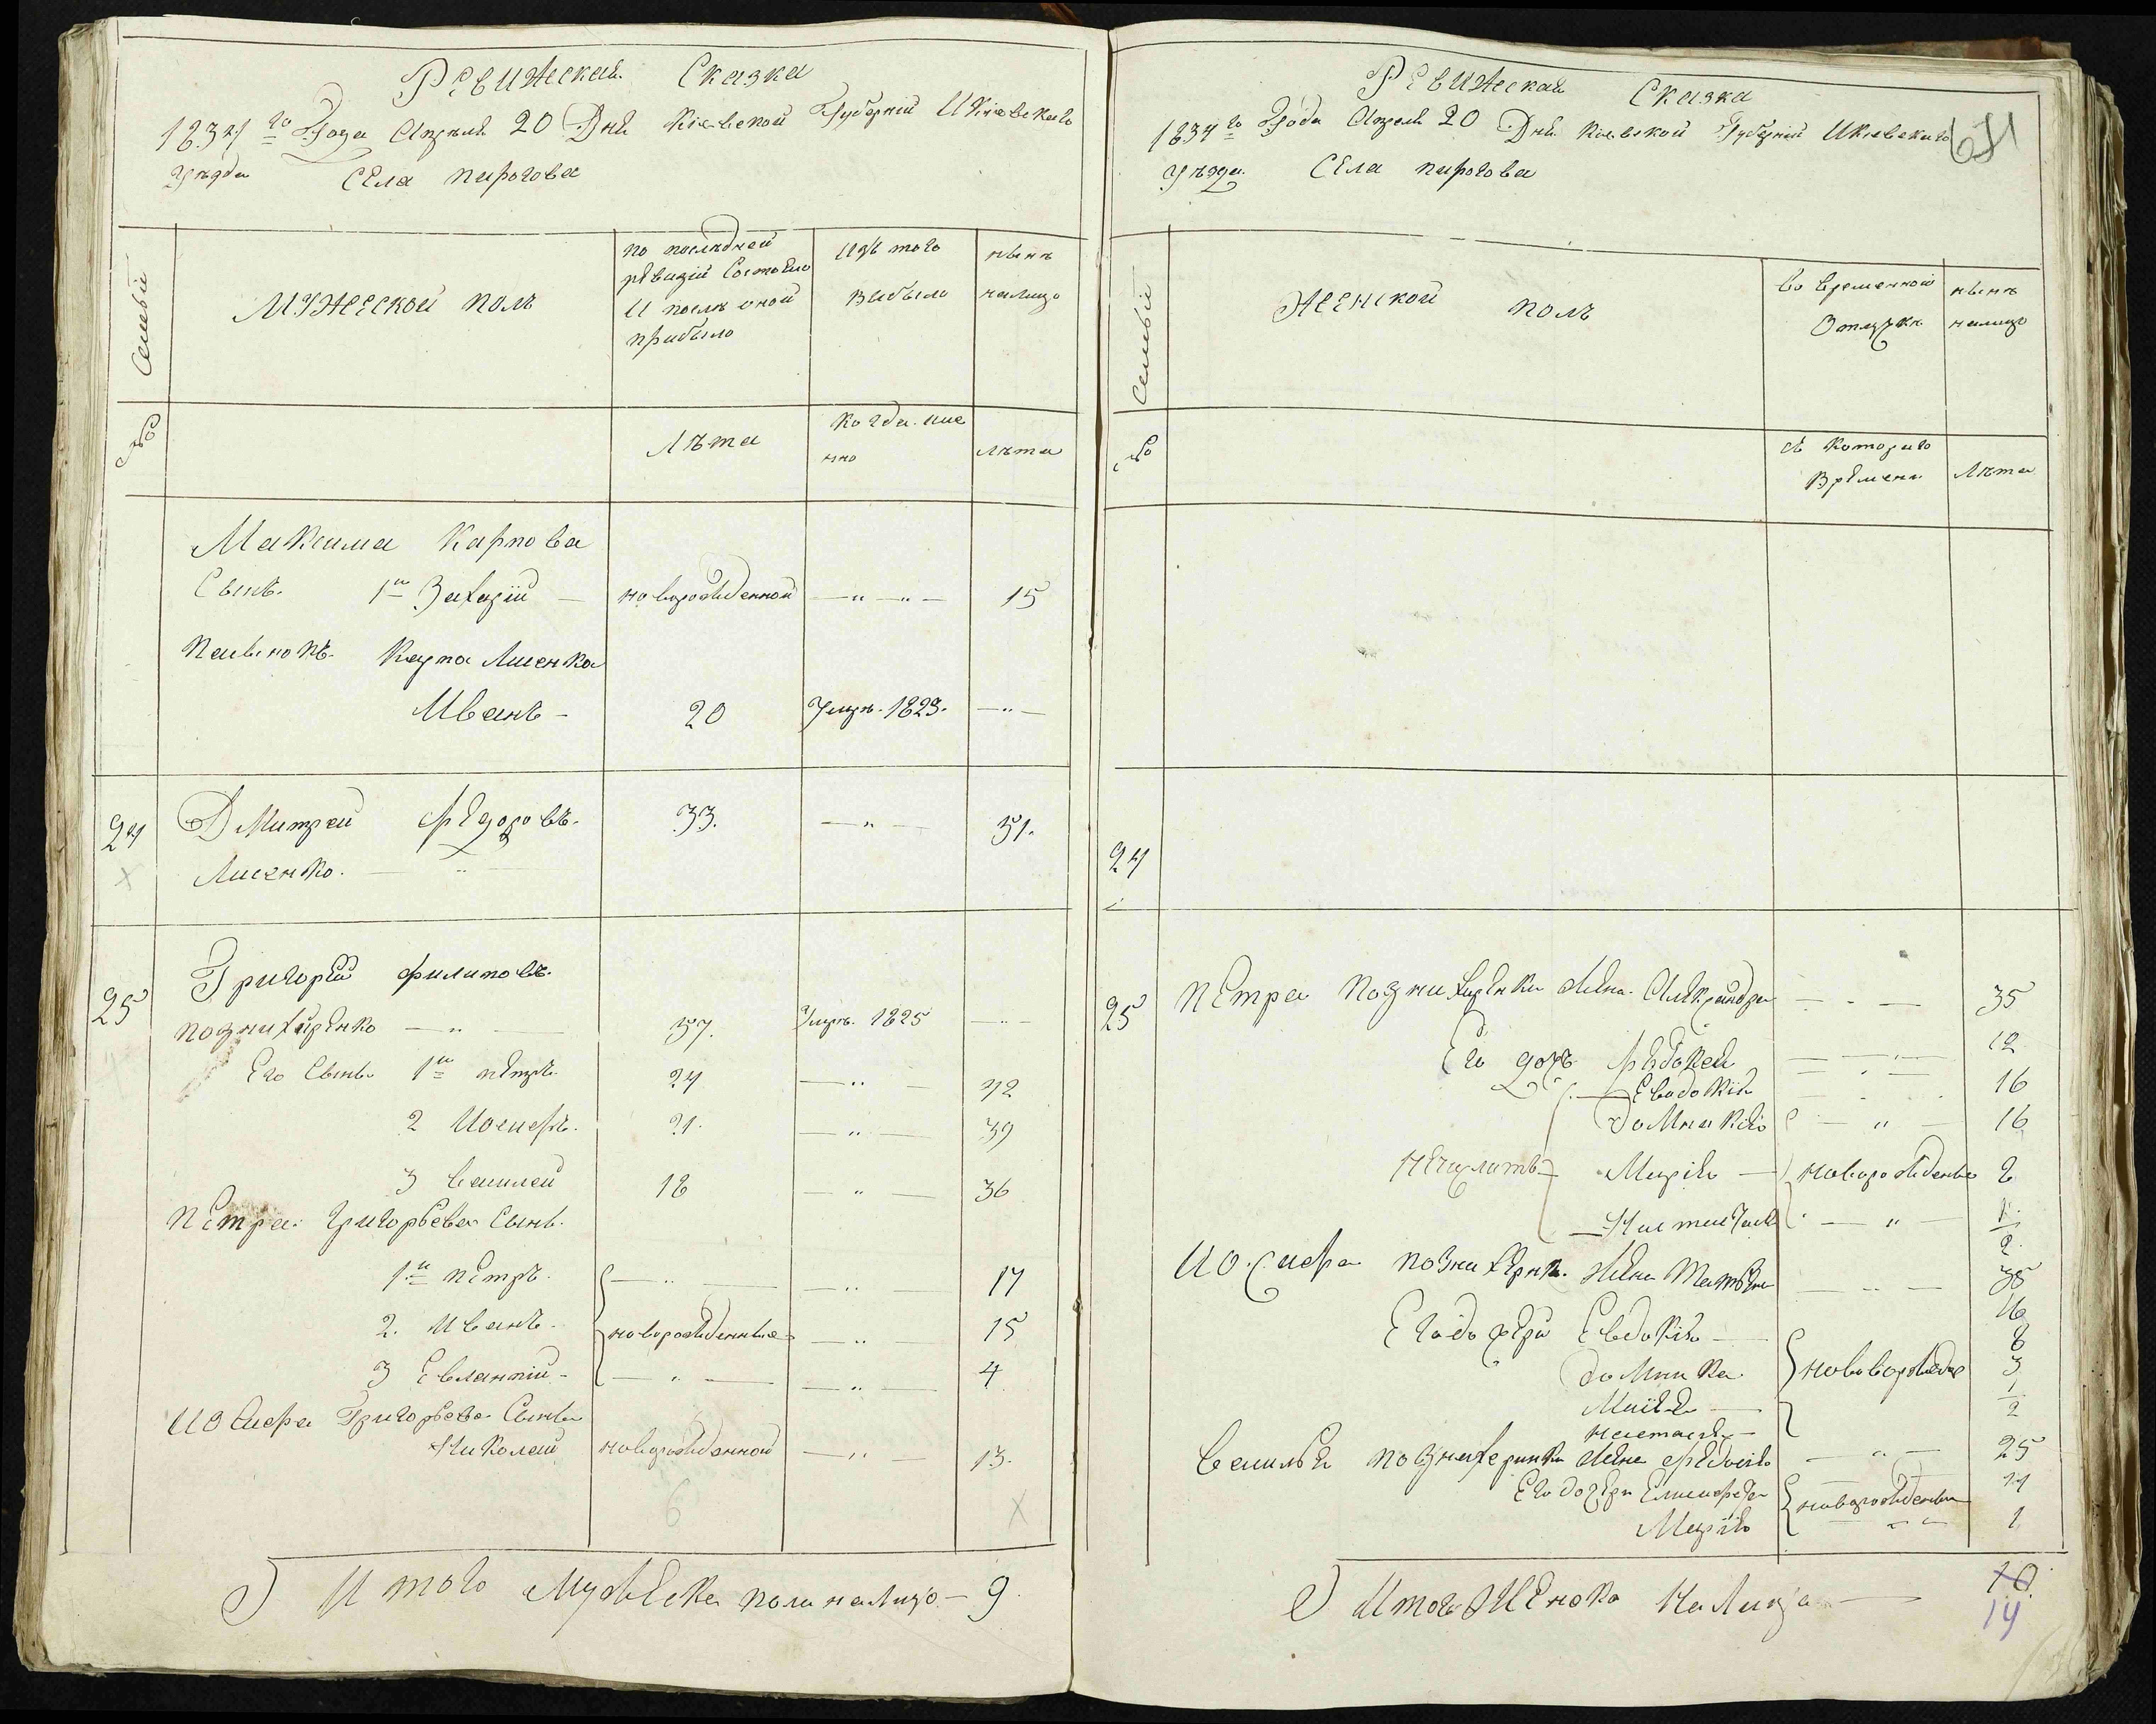 Ревижская Сказка
1834го Года Апреля 20 Дня Киевской Губерніи И Киевскаго
Уезда Села пирогова
Семьи
МУжеской полъ
по последней
ревизіи Состояло
И после оной
прибыло
Изъ того
выбыло
ныне
налицо
№
Лѣта
Когда име
нно
лѣта
Максима Карпова
Сынъ 1й Захарій — новорожденной — „ — „ — 15
Карпа Лисенка
Иванъ — 20 Умре. 1829. — „ —
24 Дмитрей Федоровъ. 33. — „ — 51.
Лисенко. — „ —
25 Григорій филиповъ.
познихиренко — „ — 57. Умре. 1825 — „ —
Его Сынъ 1й петръ. 24 — „ — 42
2 Иосифъ. 21. — „ — 39
3 василей 18 — „ — 36
петра григорьева Сынъ.
1й петръ. — „ — — „ — 17
2. иванъ. новорожденные — „ — 15
3 Евлантій — „ — — „ — 4
Иосифа Григорьева Сынъ
Николай новорожденной — „ — 13.
6 X
Итого Мужеска пола налицо — 9.
Ревижская Сказка
1834го Года Апреля 20 Дня Киевской Губерніи И Киевскаго
Уезда Села пирогова
Семьи
Женской полъ
во временной
Отлучке
ныне
налицо
№
съ Котораго
Времени
Лѣта
24
25 петра познихиренки жена Александра — „ — 35
Его дочь 12
Евдокия — „ — 16
Домникия — „ — 16
Мария — новорожденные 2
Настасия — „ — 1/2
Иосифа познихиренка жена Татьяна — „ — 35
Его дочери Евдокия — 16
Домника новорожденные 8
3
Настасья — 1/2
Василья познихеринка жена Федосия — „ — 25
Его дочери Елисафета новорожденные 4
Мария — „ — 1
Итого Женска Налицо —
14